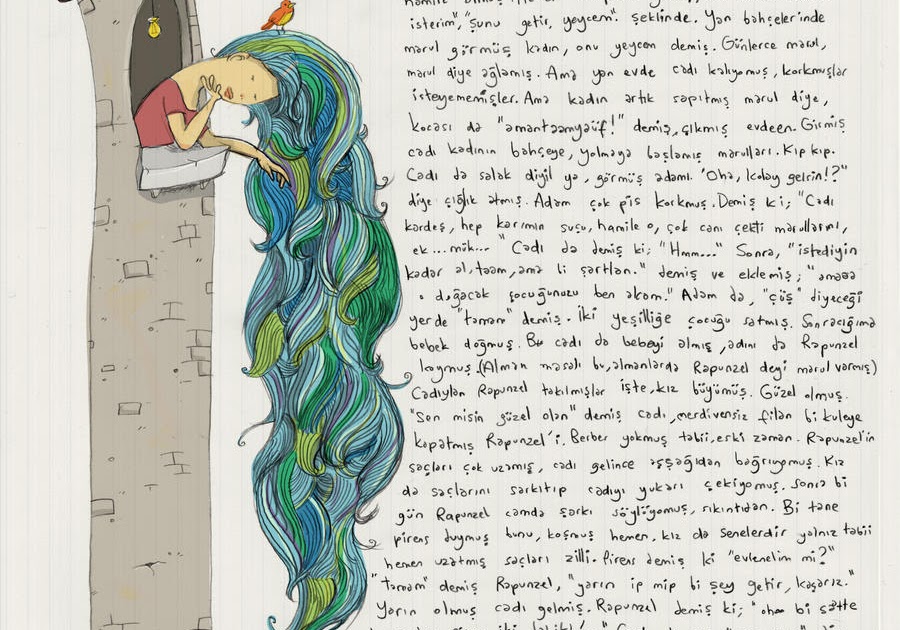 isterim", "şunu getir, yeycem". şeklinde. Yan bahçelerinde
marul görmüş kadın, onu yeycen demiş. Günlerce marul,
marul diye ağlamış. Ama yan evde cadı kalıyomuş, korkmuşlar
isteyememişler. Ama kadın artık sapıtmış marul diye,
kocası da "amantaamyaüf!" demiş, çıkmış evdeen. Girmiş
cadı kadının bahçeye, yolmaya başlamış marulları. Kıp kıp.
Cadı da salak diyil ya, görmüş adamı. "Oha, kolay gelsin!?"
diye çığlık atmış. Adam çok pis korkmuş. Demiş ki; "Cadı
kardeş, hep karımın suçu, hamile o, çok canı çekti marullarını,
ek....mük... " Cadı da demiş ki; "Hmm..." Sonra, "istediyin
kadar al, taam, ama bi şartlan." demiş ve eklemiş; "amaaa
o doğacak çocuğunuzu ben alcam." Adam da, "çüş" diyeceği
yerde "tamam" demiş. İki yeşilliğe çocuğu satmış. Sonracığıma
bebek doğmuş. Bu cadı da bebeyi almış, adını da Rapunzel
koymuş. (Alman masalı bu, almanlarda Rapunzel deyi marul varmış)
Cadıylan Rapunzel takılmışlar işte, kız büyümüş. Güzel olmuş.
"Sen misin güzel olan" demiş cadı, merdivensiz filan bi kuleye
kapatmış Rapunzel'i. Berber yokmuş tabii, eski zaman. Rapunzel'in
saçları çok uzamış, cadı gelince aşşağıdan bağrıyomuş. Kız
da saçlarını sarkıtıp cadıyı yukarı çekiyomuş. Sonra bi
gün Rapunzel camda şarkı söylüyomuş, sıkıntıdan. Bi tane
pirens duymuş bunu, koşmuş hemen, kız da senelerdir yalnız tabii
hemen uzatmış saçları zilli. Pirens demiş ki "evlenelim mi?"
"Tamam" demiş Rapunzel, "yarın ip mip bi şey getir, kaçarız."
Yarın olmuş cadı gelmiş. Rapunzel demiş ki; "ohaa bi saatte